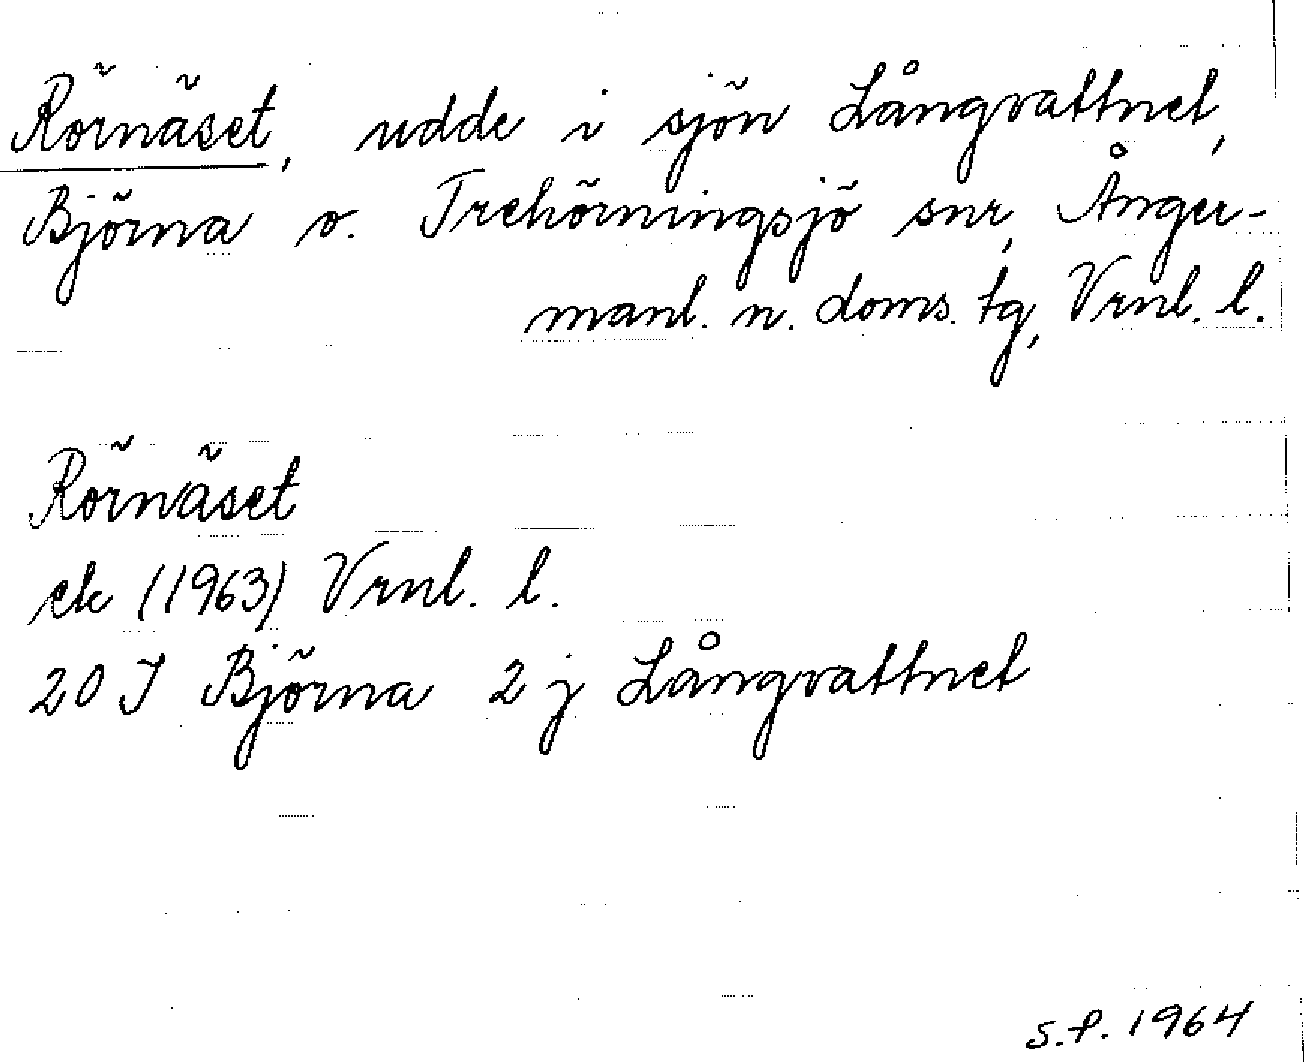 Rörnäset, udde i sjön Långvattnet,
Björna o. Trehörningsjö snr, Ånger-
manl. n. doms. tg, Vrnl. l.
Rörnäset
ek (1963) Vrnl. l.
20 I Björna 2 j Långvattnet
S.P. 1964